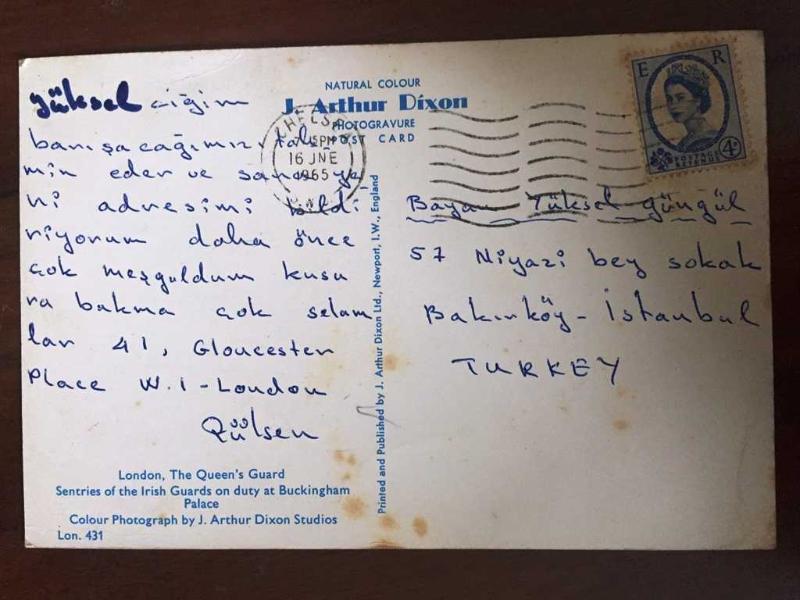 NATURAL COLOUR
J. Arthur Dixon
PHOTOGRAVURE
POST CARD
CHELSEA
PM
16 JNE
1965
E R
POSTAGE
REVENUE
4D
Yüksel ciğim
barışacağımızı tah-
min eder ve sana ye
ni adresimi bildi
riyorum daha önce
çok meşguldum kusu
ra bakma çok selam
lar 41, Gloucester
Place W.1-London
Gülsen
Bayan Yüksel Güngül
57 Niyazi bey sokak
Bakırköy-İstanbul
TURKEY
Printed and Published by J. Arthur Dixon Ltd., Newport, I.W., England
London, The Queen's Guard
Sentries of the Irish Guards on duty at Buckingham
Palace
Colour Photograph by J. Arthur Dixon Studios
Lon. 431